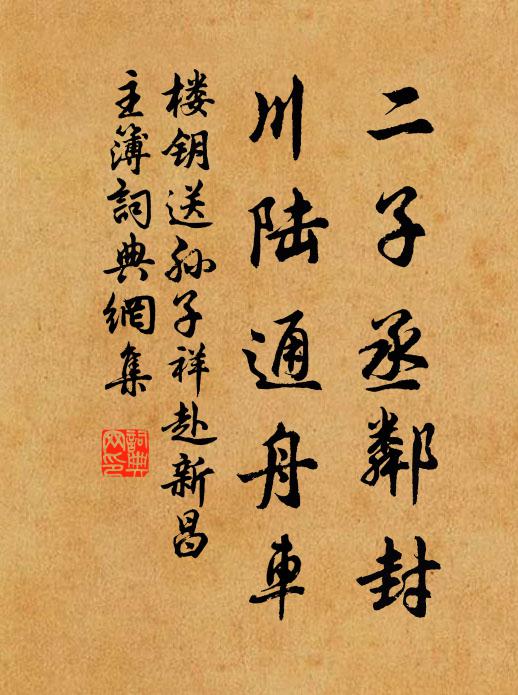 二子丞鄰封
川陆通舟車
楼钥送孙子祥赴新昌
主簿詞典網集
詞典网印